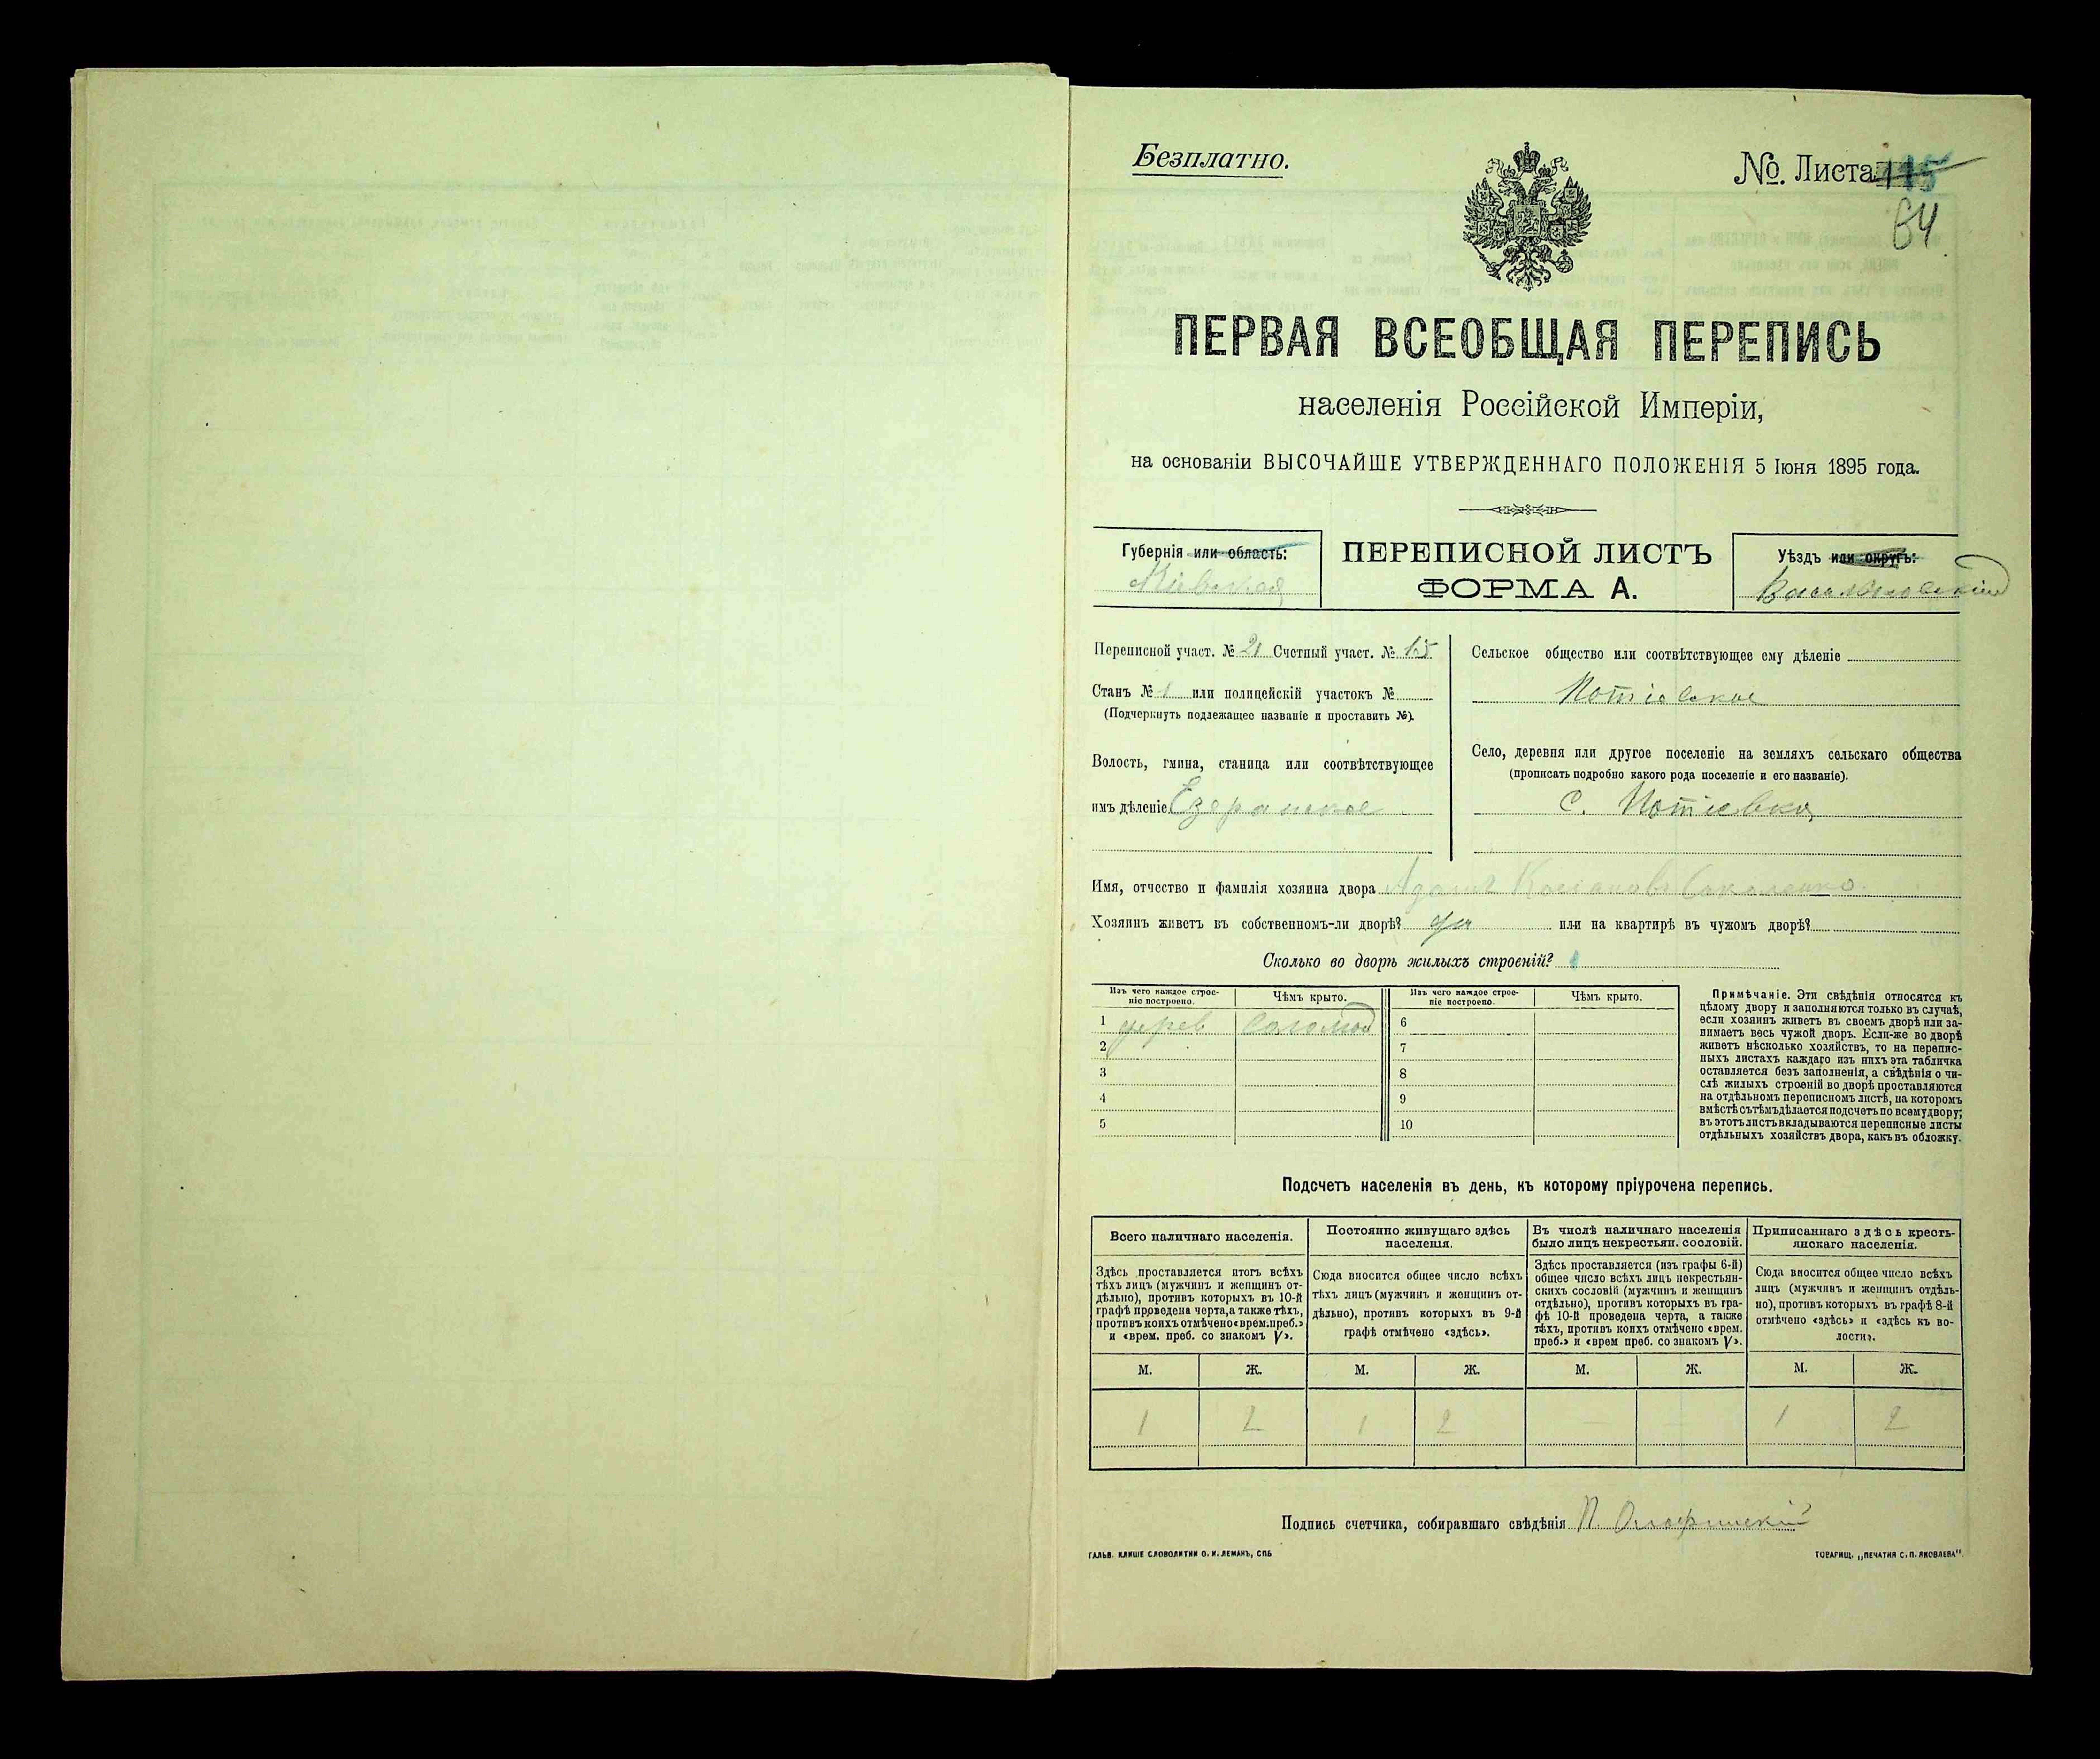 Безплатно.
№ Листа 115
64
ПЕРВАЯ ВСЕОБЩАЯ ПЕРЕПИСЬ
населенія Россійской Имперіи,
на основаніи ВЫСОЧАЙШЕ УТВЕРЖДЕННАГО ПОЛОЖЕНІЯ 5 Іюня 1895 года.
Губернія или область:
Кіевская
ПЕРЕПИСНОЙ ЛИСТЪ
ФОРМА А.
Уѣздъ или округъ:
Васильковскій
Переписной участ. № 21 Счетный участ. № 15
Станъ № 1 или полицейскій участокъ №
(Подчеркнуть подлежащее названіе и проставить №).
Волость, гмина, станица или соотвѣтствующее
имъ дѣленіе Езерянское
Сельское общество или соотвѣтствующее ему дѣленіе
Потіевское
Село, деревня или другое поселеніе на земляхъ сельскаго общества
(прописать подробно какого рода поселеніе и его названіе).
с. Потіевка
Имя, отчество и фамилія хозяина двора Адамъ Соколенко
Хозяинъ живетъ въ собственномъ-ли дворѣ? да или на квартирѣ въ чужомъ дворѣ?
Сколько во дворѣ жилыхъ строеній? 1
Изъ чего каждое строе-
ніе построено.
Чѣмъ крыто.
Изъ чего каждое строе-
ніе построено.
Чѣмъ крыто.
1 дерев соломой 6
2 7
3 8
4 9
5 10
Примѣчаніе. Эти свѣдѣнія относятся къ
цѣлому двору и заполняются только въ случаѣ,
если хозяинъ живетъ въ своемъ дворѣ или за-
нимаетъ весь чужой дворъ. Если-же во дворѣ
живетъ нѣсколько хозяйствъ, то на перепис-
ныхъ листахъ каждаго изъ нихъ эта табличка
оставляется безъ заполненія, а свѣдѣнія о чи-
слѣ жилыхъ строеній во дворѣ проставляются
на отдѣльномъ переписномъ листѣ, на которомъ
вмѣстѣ съ тѣмъ дѣлается подсчетъ по всему двору;
въ этотъ листъ вкладываются переписные листы
отдѣльныхъ хозяйствъ двора, какъ въ обложку.
Подсчетъ населенія въ день, къ которому пріурочена перепись.
Всего наличнаго населенія.
Здѣсь проставляется итогъ всѣхъ
тѣхъ лицъ (мужчинъ и женщинъ от-
дѣльно), противъ которыхъ въ 10-й
графѣ проведена черта, а также тѣхъ,
противъ коихъ отмѣчено «врем. преб.»
и «врем. преб. со знакомъ V».
Постоянно живущаго здѣсь
населенія.
Сюда вносится общее число всѣхъ
тѣхъ лицъ (мужчинъ и женщинъ от-
дѣльно), противъ которыхъ въ 9-й
графѣ отмѣчено «здѣсь».
Въ числѣ наличнаго населенія
было лицъ некрестьян. сословій.
Здѣсь проставляется (изъ графы 6-й)
общее число всѣхъ лицъ некрестьян-
скихъ сословій (мужчинъ и женщинъ
отдѣльно), противъ которыхъ въ гра-
фѣ 10-й проведена черта, а также
тѣхъ, противъ коихъ отмѣчено «врем.
преб.» и «врем преб. со знакомъ V».
Приписаннаго здѣсь кресть-
янскаго населенія.
Сюда вносится общее число всѣхъ
лицъ (мужчинъ и женщинъ отдѣль-
но), противъ которыхъ въ графѣ 8-й
отмѣчено «здѣсь» и «здѣсь въ во-
лости».
М. Ж. М. Ж. М. Ж. М. Ж.
1 2 1 2 — — 1 2
Подпись счетчика, собиравшаго свѣдѣнія П.
ГАЛЬВ. КЛИШЕ СЛОВОЛИТНИ О. И. ЛЕМАНЪ, СПБ
ТОВАРИЩ. „ПЕЧАТНЯ С. П. ЯКОВЛЕВА"